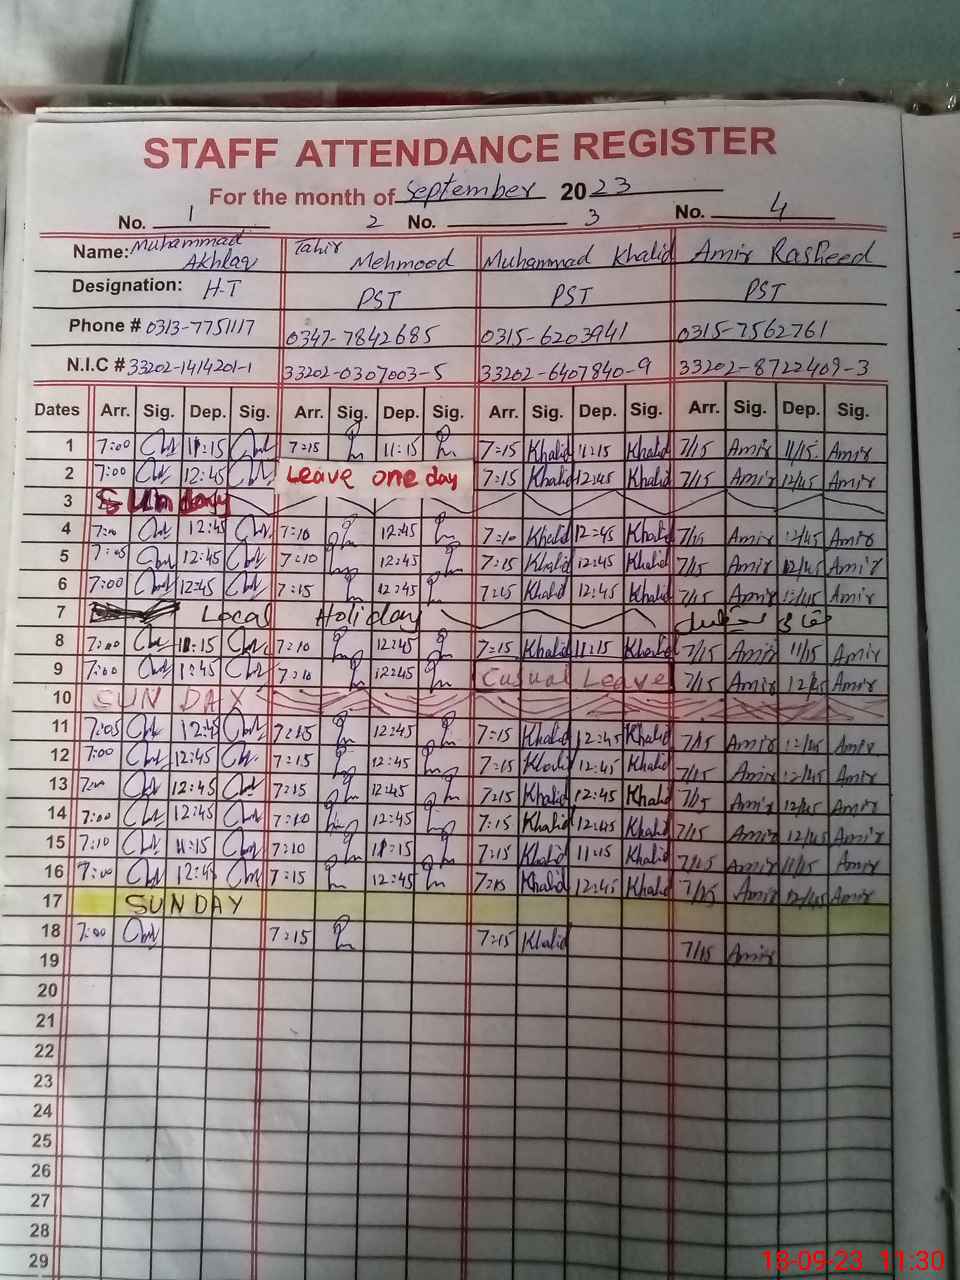 STAFF ATTENDANCE REGISTER
For the month of September 2023
No. 1 2 No. 3 No. 4
Name: Muhammad Akhlaq Tahir Mehmood Muhammad Khalid Amir Rasheed
Designation: H-T PST PST PST
Phone # 0313-7751117 0347-7842685 0315-6203941 0315-7562761
N.I.C # 33202-1414201-1 33202-0307003-5 33202-6407840-9 33202-8722409-3
Dates Arr. Sig. Dep. Sig. Arr. Sig. Dep. Sig. Arr. Sig. Dep. Sig. Arr. Sig. Dep. Sig.
1 7:00 11:15 7:15 11:15 7:15 Khalid 11:15 Khalid 7/15 Amir 11/15 Amir
2 7:00 12:45 Leave one day 7:15 Khalid 12:45 Khalid 7/15 Amir 12/45 Amir
3 Sunday
4 12:45 7:10 12:45 7:10 Khalid 12:45 Khalid 7/15 Amir 12/45 Amir
5 7:05 12:45 7:10 12:45 7:15 Khalid 12:45 Khalid 7/15 Amir 12/45 Amir
6 7:00 12:45 7:15 12:45 7:15 Khalid 12:45 Khalid 7/15 Amir 12/45 Amir
7 Local Holiday مقامی تعطیل
8 7:00 11:15 7:10 12:45 7:15 Khalid 11:15 Khalid 7/15 Amir 11/15 Amir
9 7:00 12:45 7:10 12:45 Casual Leave 7/15 Amir 12/45 Amir
10 SUNDAY
11 7:05 12:45 7:15 12:45 7:15 Khalid 12:45 Khalid 7/15 Amir 12/45 Amir
12 7:00 12:45 7:15 12:45 7:15 Khalid 12:45 Khalid 7/15 Amir 12/45 Amir
13 12:45 7:15 12:45 7:15 Khalid 12:45 Khalid 7/15 Amir 12/45 Amir
14 7:00 12:45 7:10 12:45 7:15 Khalid 12:45 Khalid 7/15 Amir 12/45 Amir
15 7:10 11:15 7:10 11:15 7:15 Khalid 11:15 Khalid 7/15 Amir 11/15 Amir
16 7:00 12:45 7:15 12:45 7:15 Khalid 12:45 Khalid 7/15 Amir 12/45 Amir
17 SUNDAY
18 7:00 7:15 7:15 Khalid 7/15 Amir
19
20
21
22
23
24
25
26
27
28
29
18-09-23 11:30